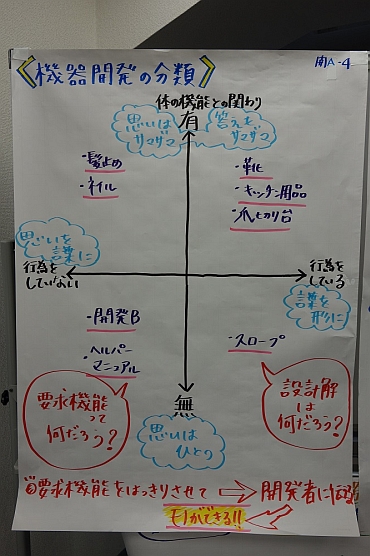 機器開発の分類
開A-4
体の機能との関わり
有
思いは
サマザマ
答えも
サマザマ
・髪止め
・ネイル
・靴
・キッチン用品
・爪ヒカリ台
思いを
謀に
行為を
していない
行為を
している
謀を
形に
・開発B
・ヘルパー
マニュアル
・スロープ
無
思いは
ひとつ
要求機能
って
何だろう?
設計解
は
何だろう?
要求機能をはっきりさせて
開発者に伝える
モノができる!!